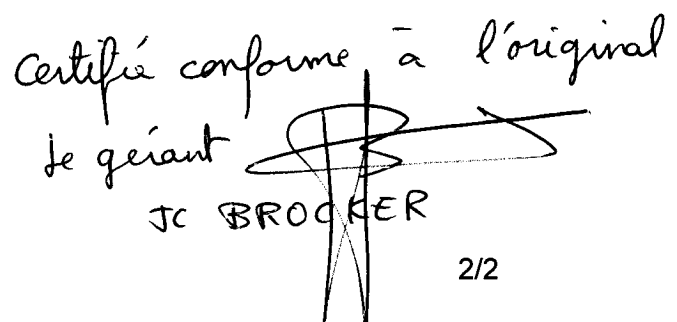 Certifié conforme à l'original
Le gérant
JC BROCKER
2/2